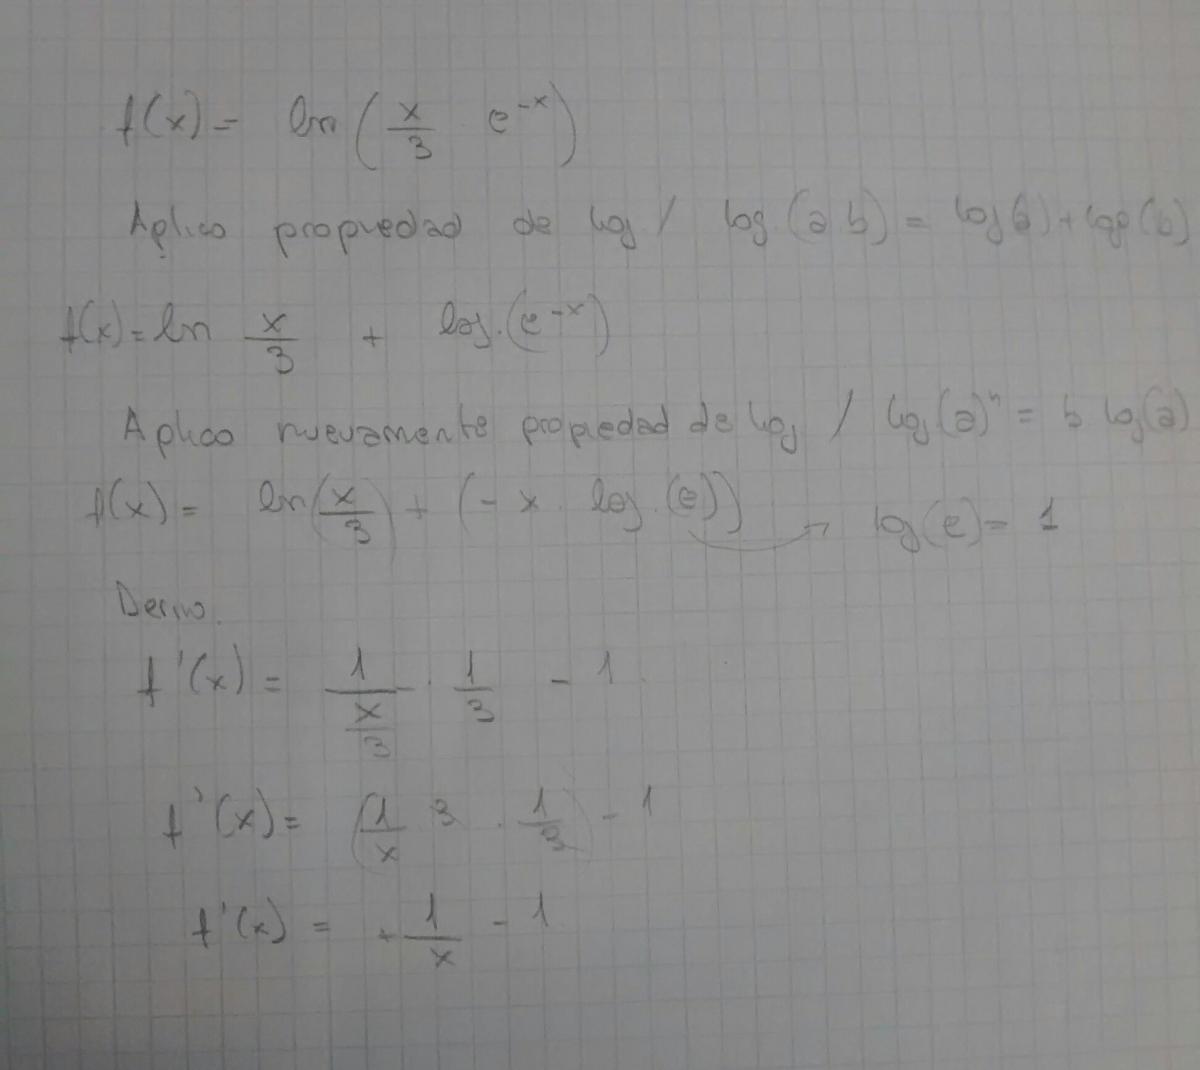 f(x) = ln(x/3 · e^-x)
Aplico propiedad de log / log (a b) = log(a) + log(b)
f(x) = ln x/3 + log.(e^-x)
Aplico nuevamente propiedad de log / log(a)^n = b log(a)
f(x) = ln(x/3) + (- x . log.(e)) → log(e) = 1
Derivo.
f'(x) = 1/(x/3) . 1/3 - 1
f'(x) = (1/x 3 . 1/3) - 1
f'(x) = + 1/x - 1